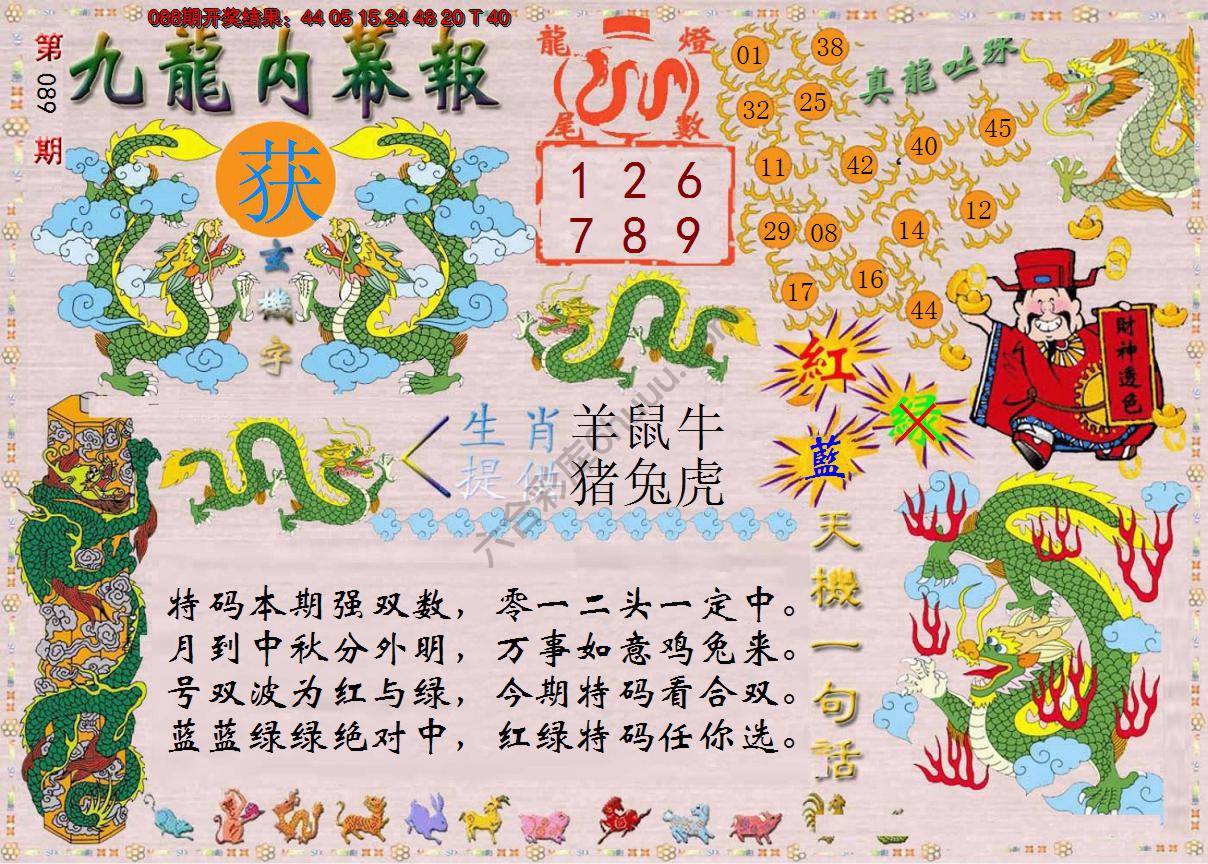 088期开奖结果：44 05 15 24 48 20 T 40
第 089 期
九龍内幕報
获
玄機字
龍燈
尾數
1 2 6
7 8 9
真龍吐珠
01 38
32 25
40 45
11 42
29 08 14 12
17 16
44
財神透色
紅
绿
蓝
生肖 羊鼠牛
提供 猪兔虎
天機一句話
特码本期强双数，零一二头一定中。
月到中秋分外明，万事如意鸡兔来。
号双波为红与绿，今期特码看合双。
蓝蓝绿绿绝对中，红绿特码任你选。